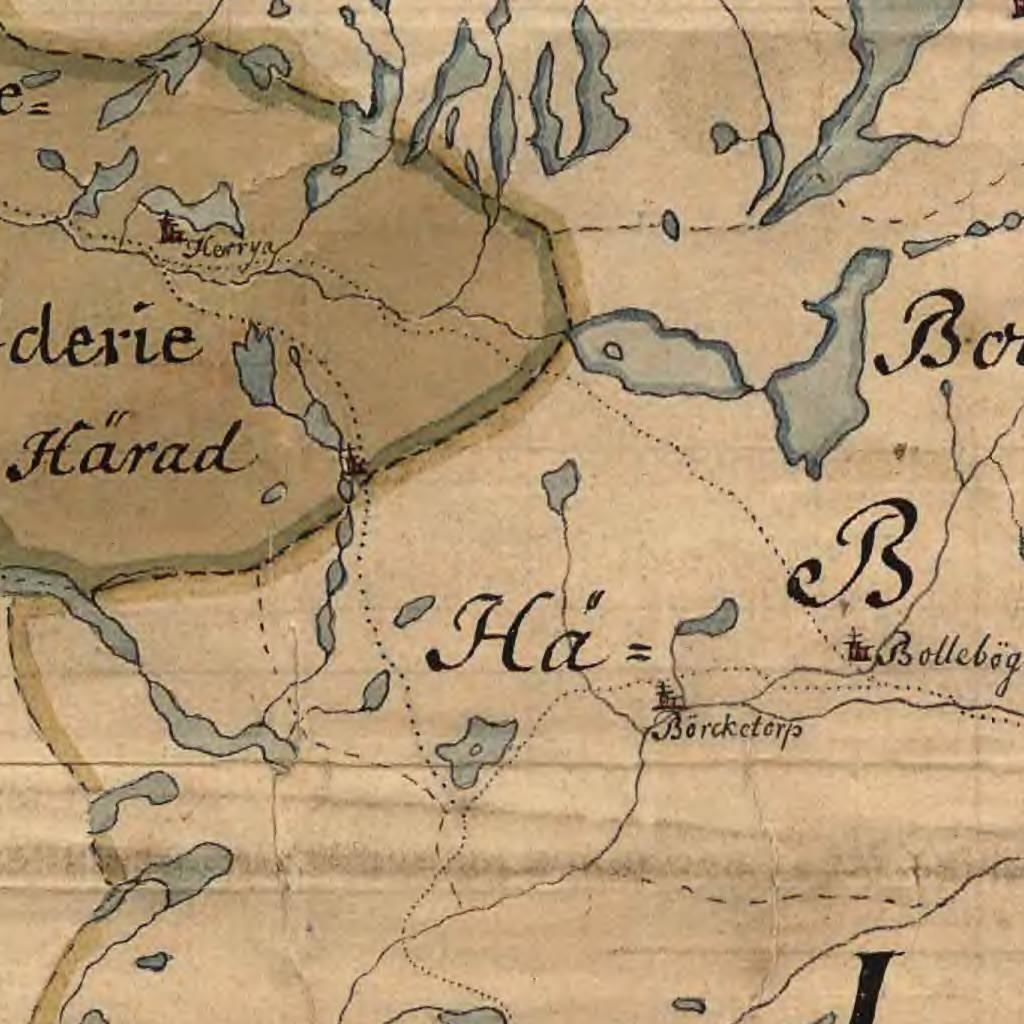 e=
Herrya
derie
Bor
Härad
B
Hä=
Bollebög
Börcketorp
I